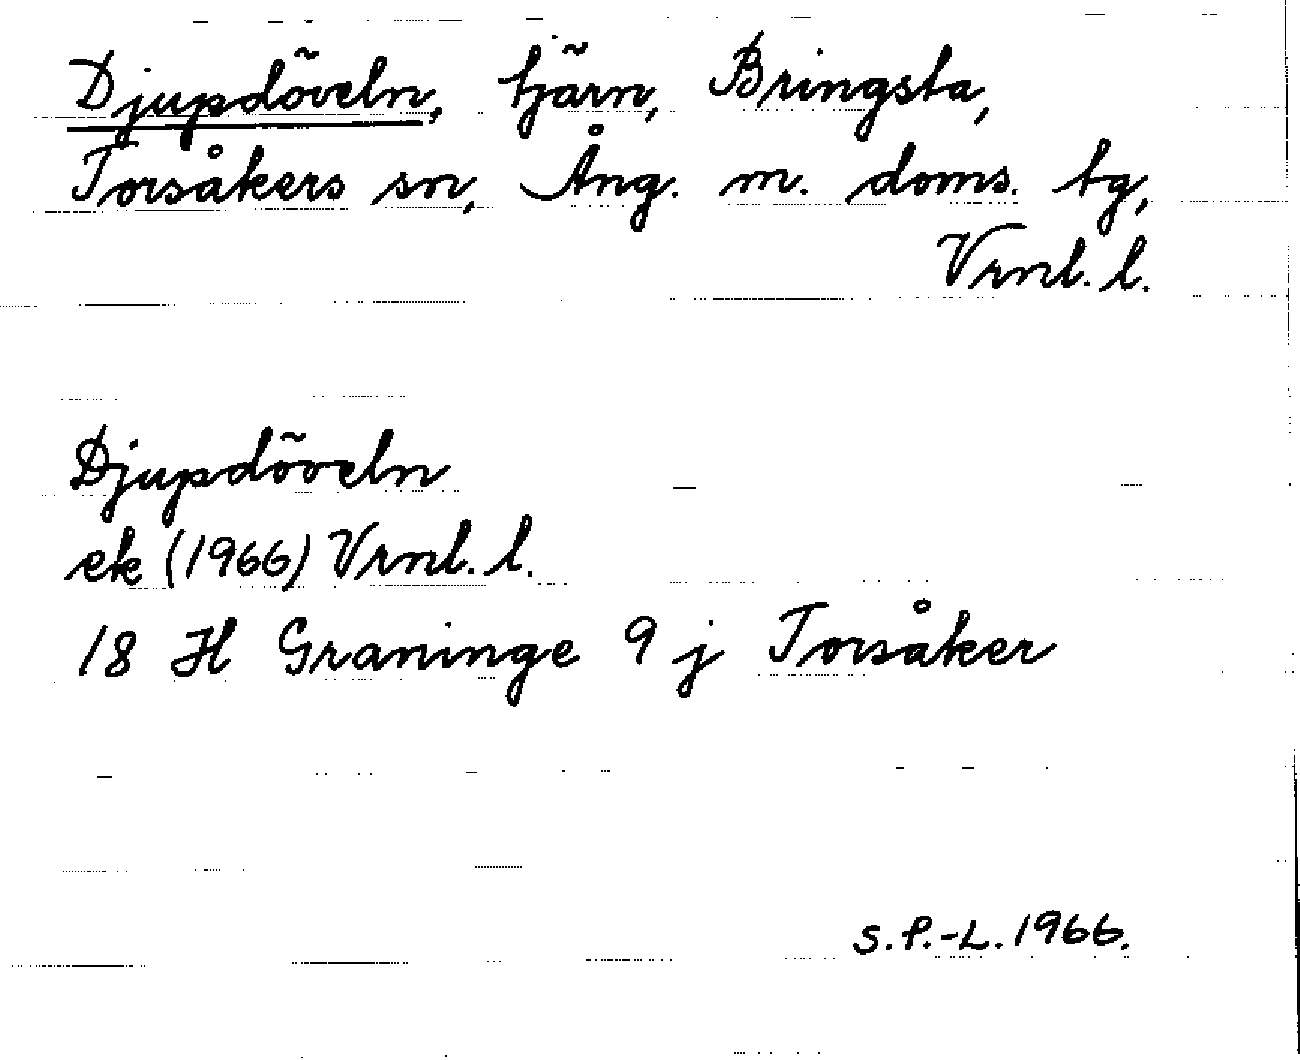 Djupdöveln, tjärn, Bringsta,
Torsåkers sn, Ång. m. doms. tg,
Vrnl. l.
Djupdöveln
ek (1966) Vrnl. l.
18 H Graninge 9 j Torsåker
S. P.-L. 1966.